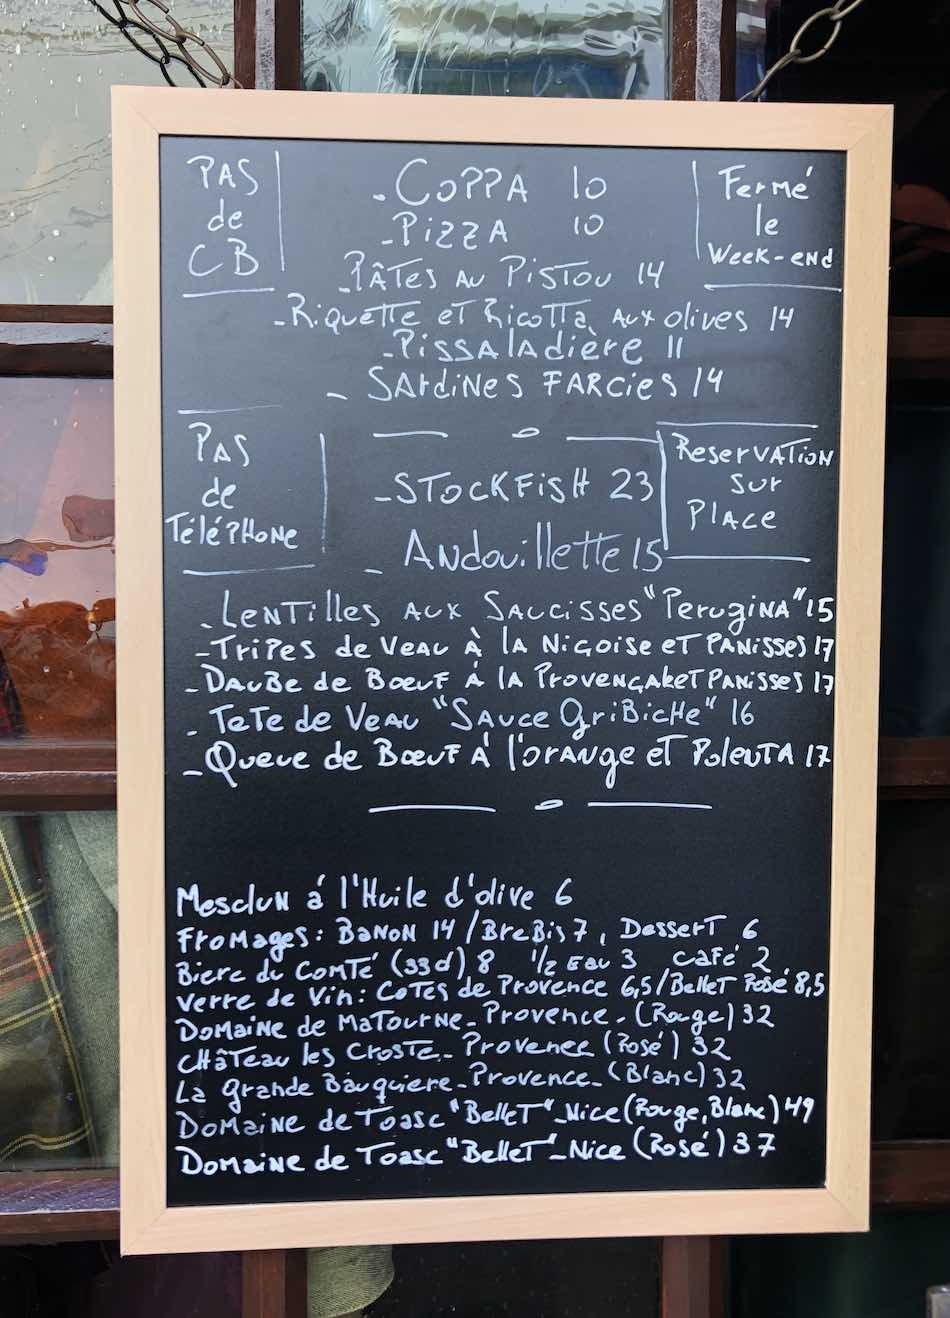 PAS
de
CB
- COPPA 10
- PIZZA 10
Fermé
le
Week-end
- PÂTES AU PISTOU 14
- Riquette et Ricotta aux olives 14
- Pissaladière 11
- SArdines FARCies 14
PAS
de
TéléPHONE
- STOCKFISH 23
Reservation
sur
Place
- Andouillette 15
- Lentilles aux Saucisses "Perugina" 15
- Tripes de Veau à la Niçoise et Panisses 17
- Daube de Bœuf à la Provençale et Panisses 17
- Tete de Veau "Sauce Gribiche" 16
- Queue de Bœuf à l'orange et Polenta 17
Mesclun á l'Huile d'olive 6
Fromages: Banon 14 / Brebis 7, Dessert 6
Biere du Comté (33d) 8 1/2 Eau 3 Café 2
Verre de Vin: Cotes de Provence 6,5 / Bellet Rosé 8,5
Domaine de Matourne - Provence - (Rouge) 32
Château les Croste - Provence (Rosé) 32
La Grande Bauquiere - Provence - (Blanc) 32
Domaine de Toasc "Bellet" - Nice (Rouge, Blanc) 49
Domaine de Toasc "Bellet" - Nice (Rosé) 37